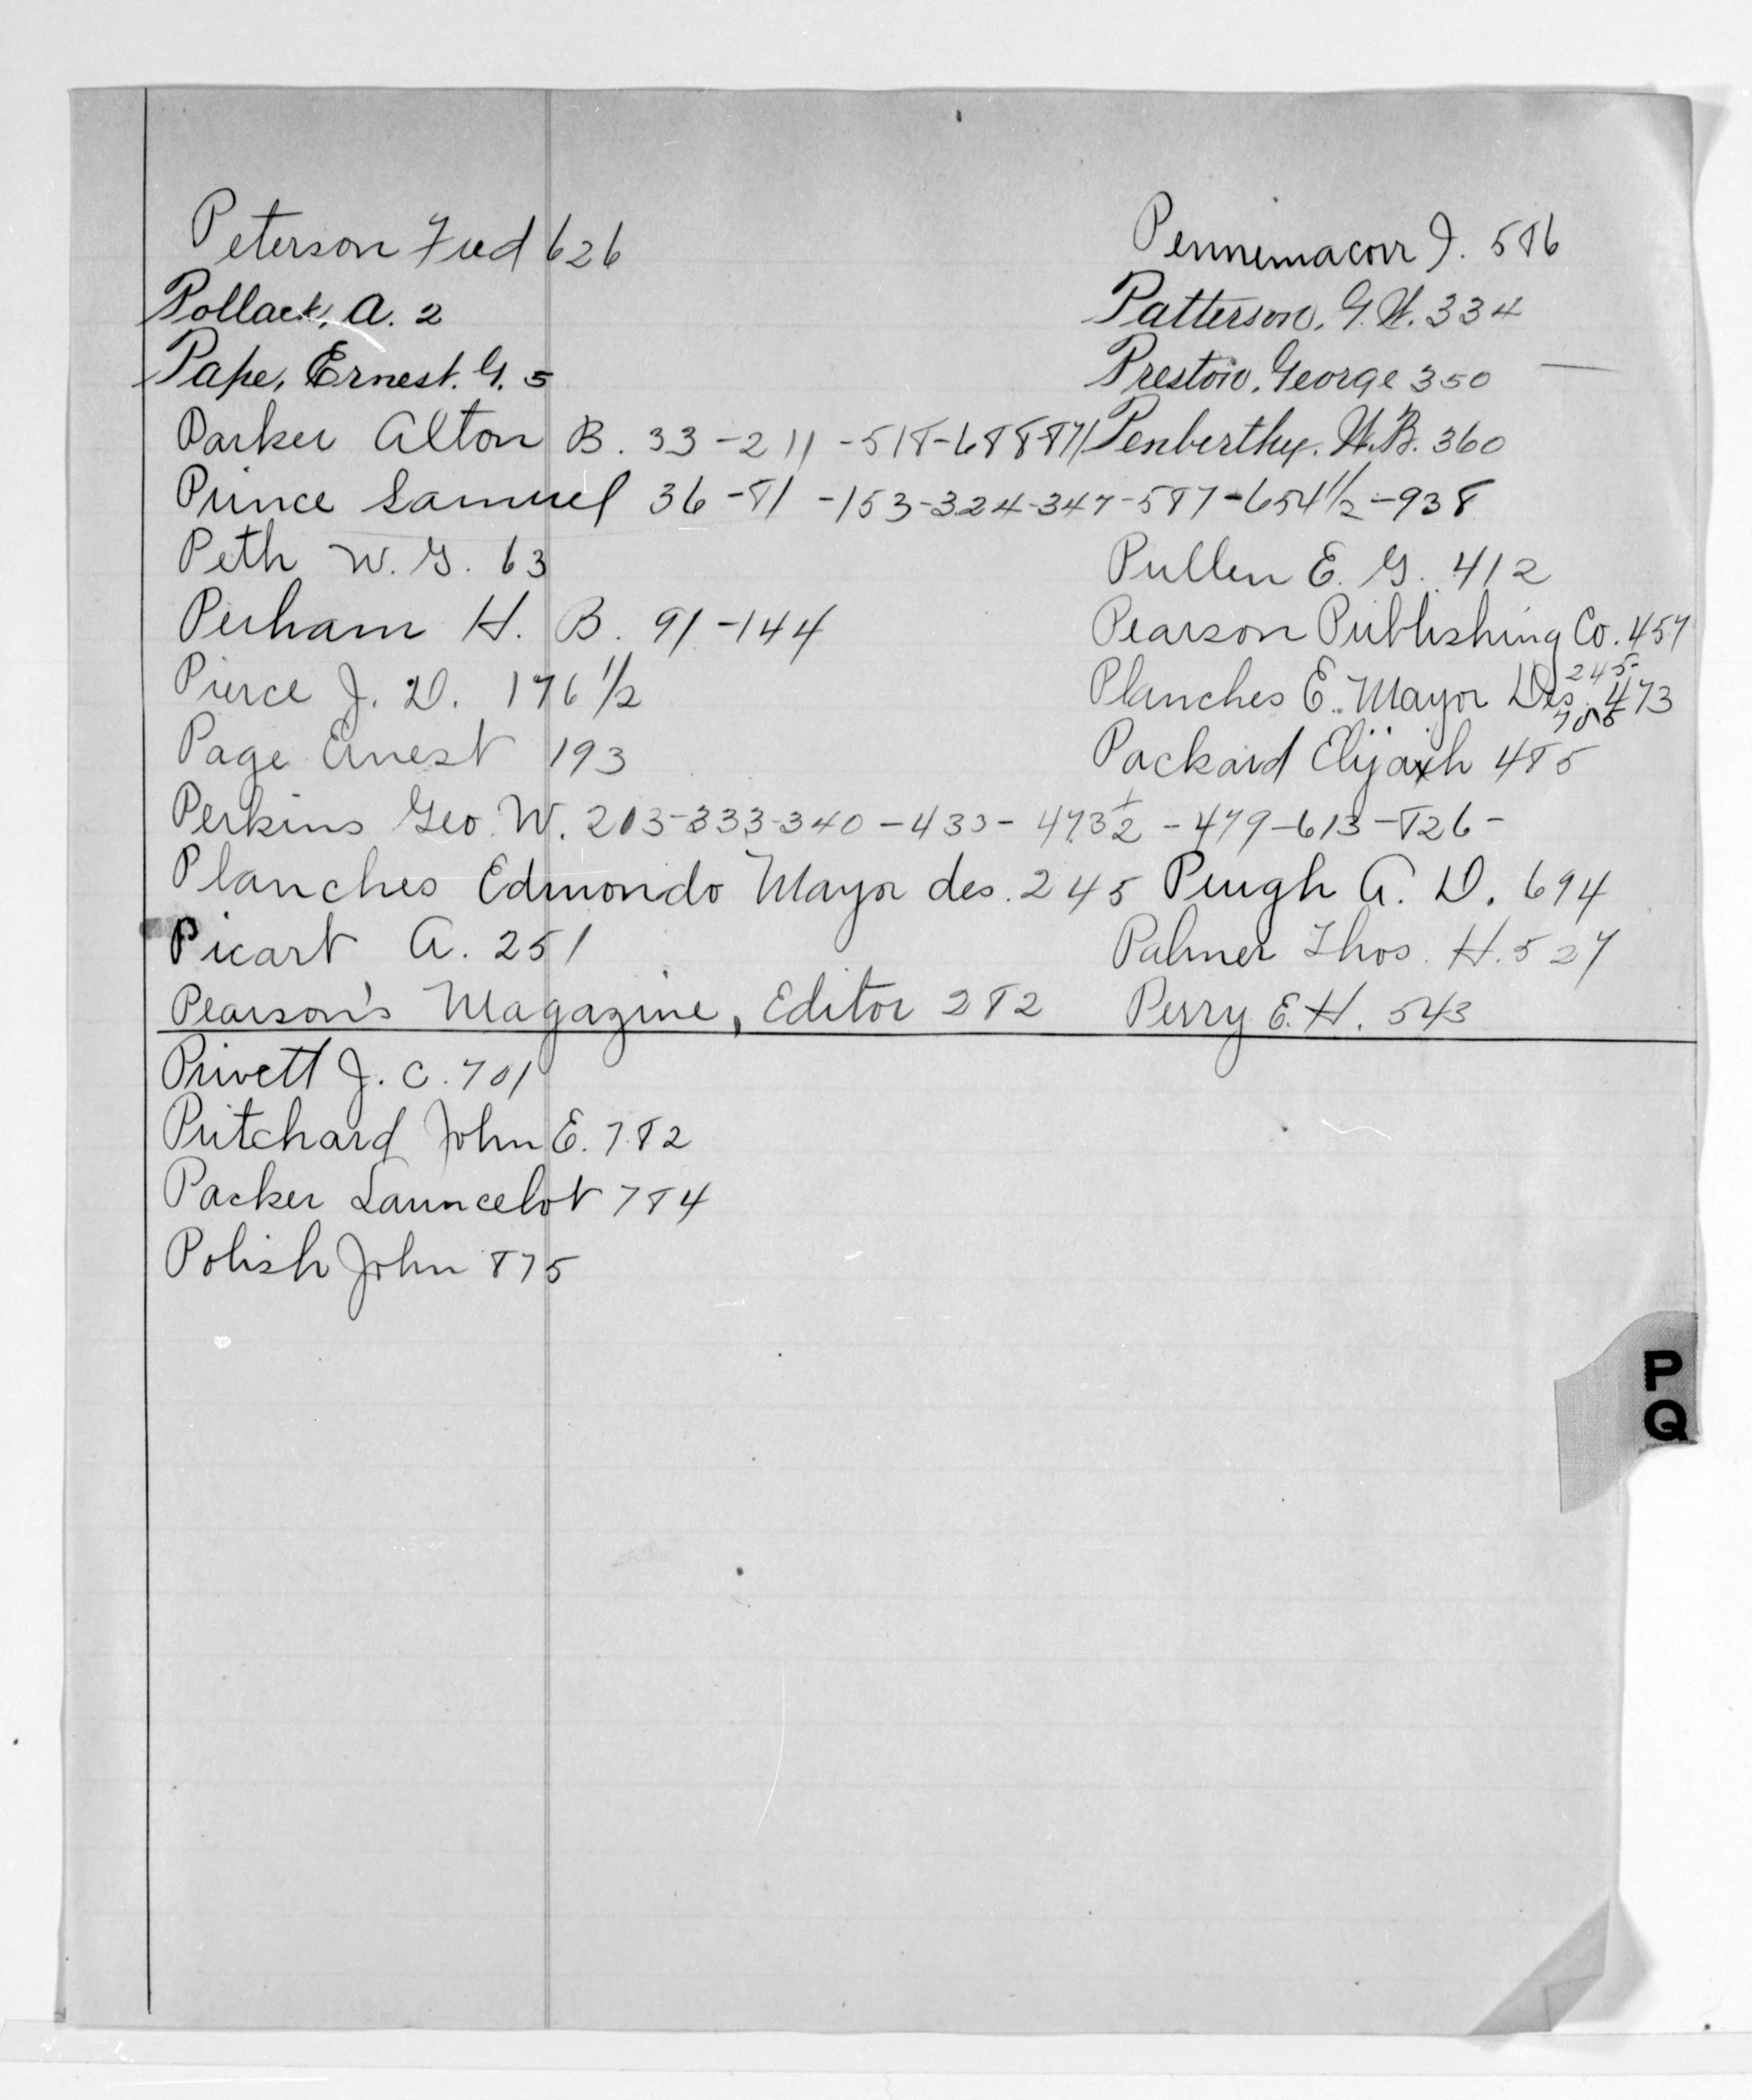 Peterson Fred 626
Pennimacorr J. 586
Pollack, A. 2
Patterson, G. W. 334
Pape, Ernest. G. 5
Preston, George 350
Parker Alton B. 33-211-518-688-871
Penberthy. W.B. 360
Prince Samuel 36-81-153-324-347-587-654 1/2-938
Peth W. G. 63
Pullen E. G. 412
Perham H. B. 91-144
Pearson Publishing Co. 457
Pierce J. D. 176 1/2
Planches E. Mayor Des. 245 473 785
Page Ernest 193
Packard Elijah 485
Perkins Geo. W. 203-333-340-433-473 1/2-479-613-826-
Planches Edmondo Mayor des. 245
Pugh A. D. 694
Picart A. 251
Palmer Thos. H. 527
Pearson's Magazine, Editor 282
Perry E. H. 543
Privett J. C. 701
Pritchard John E. 782
Packer Launcelot 784
Polish John 875
P
Q